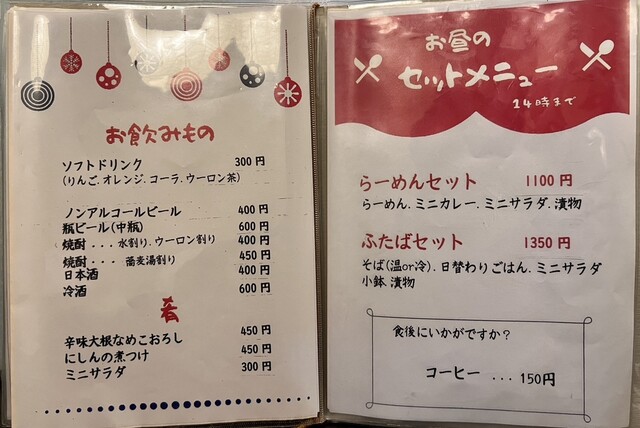 お飲みもの
ソフトドリンク 300円
(りんご.オレンジ.コーラ.ウーロン茶)
ノンアルコールビール 400円
瓶ビール(中瓶) 600円
焼酎...水割り.ウーロン割り 400円
焼酎...蕎麦湯割り 450円
日本酒 400円
冷酒 600円
肴
辛味大根なめこおろし 450円
にしんの煮つけ 450円
ミニサラダ 300円
お昼の
セットメニュー
14時まで
らーめんセット 1100円
らーめん.ミニカレー.ミニサラダ.漬物
ふたばセット 1350円
そば(温or冷).日替わりごはん.ミニサラダ
小鉢.漬物
食後にいかがですか?
コーヒー ...150円